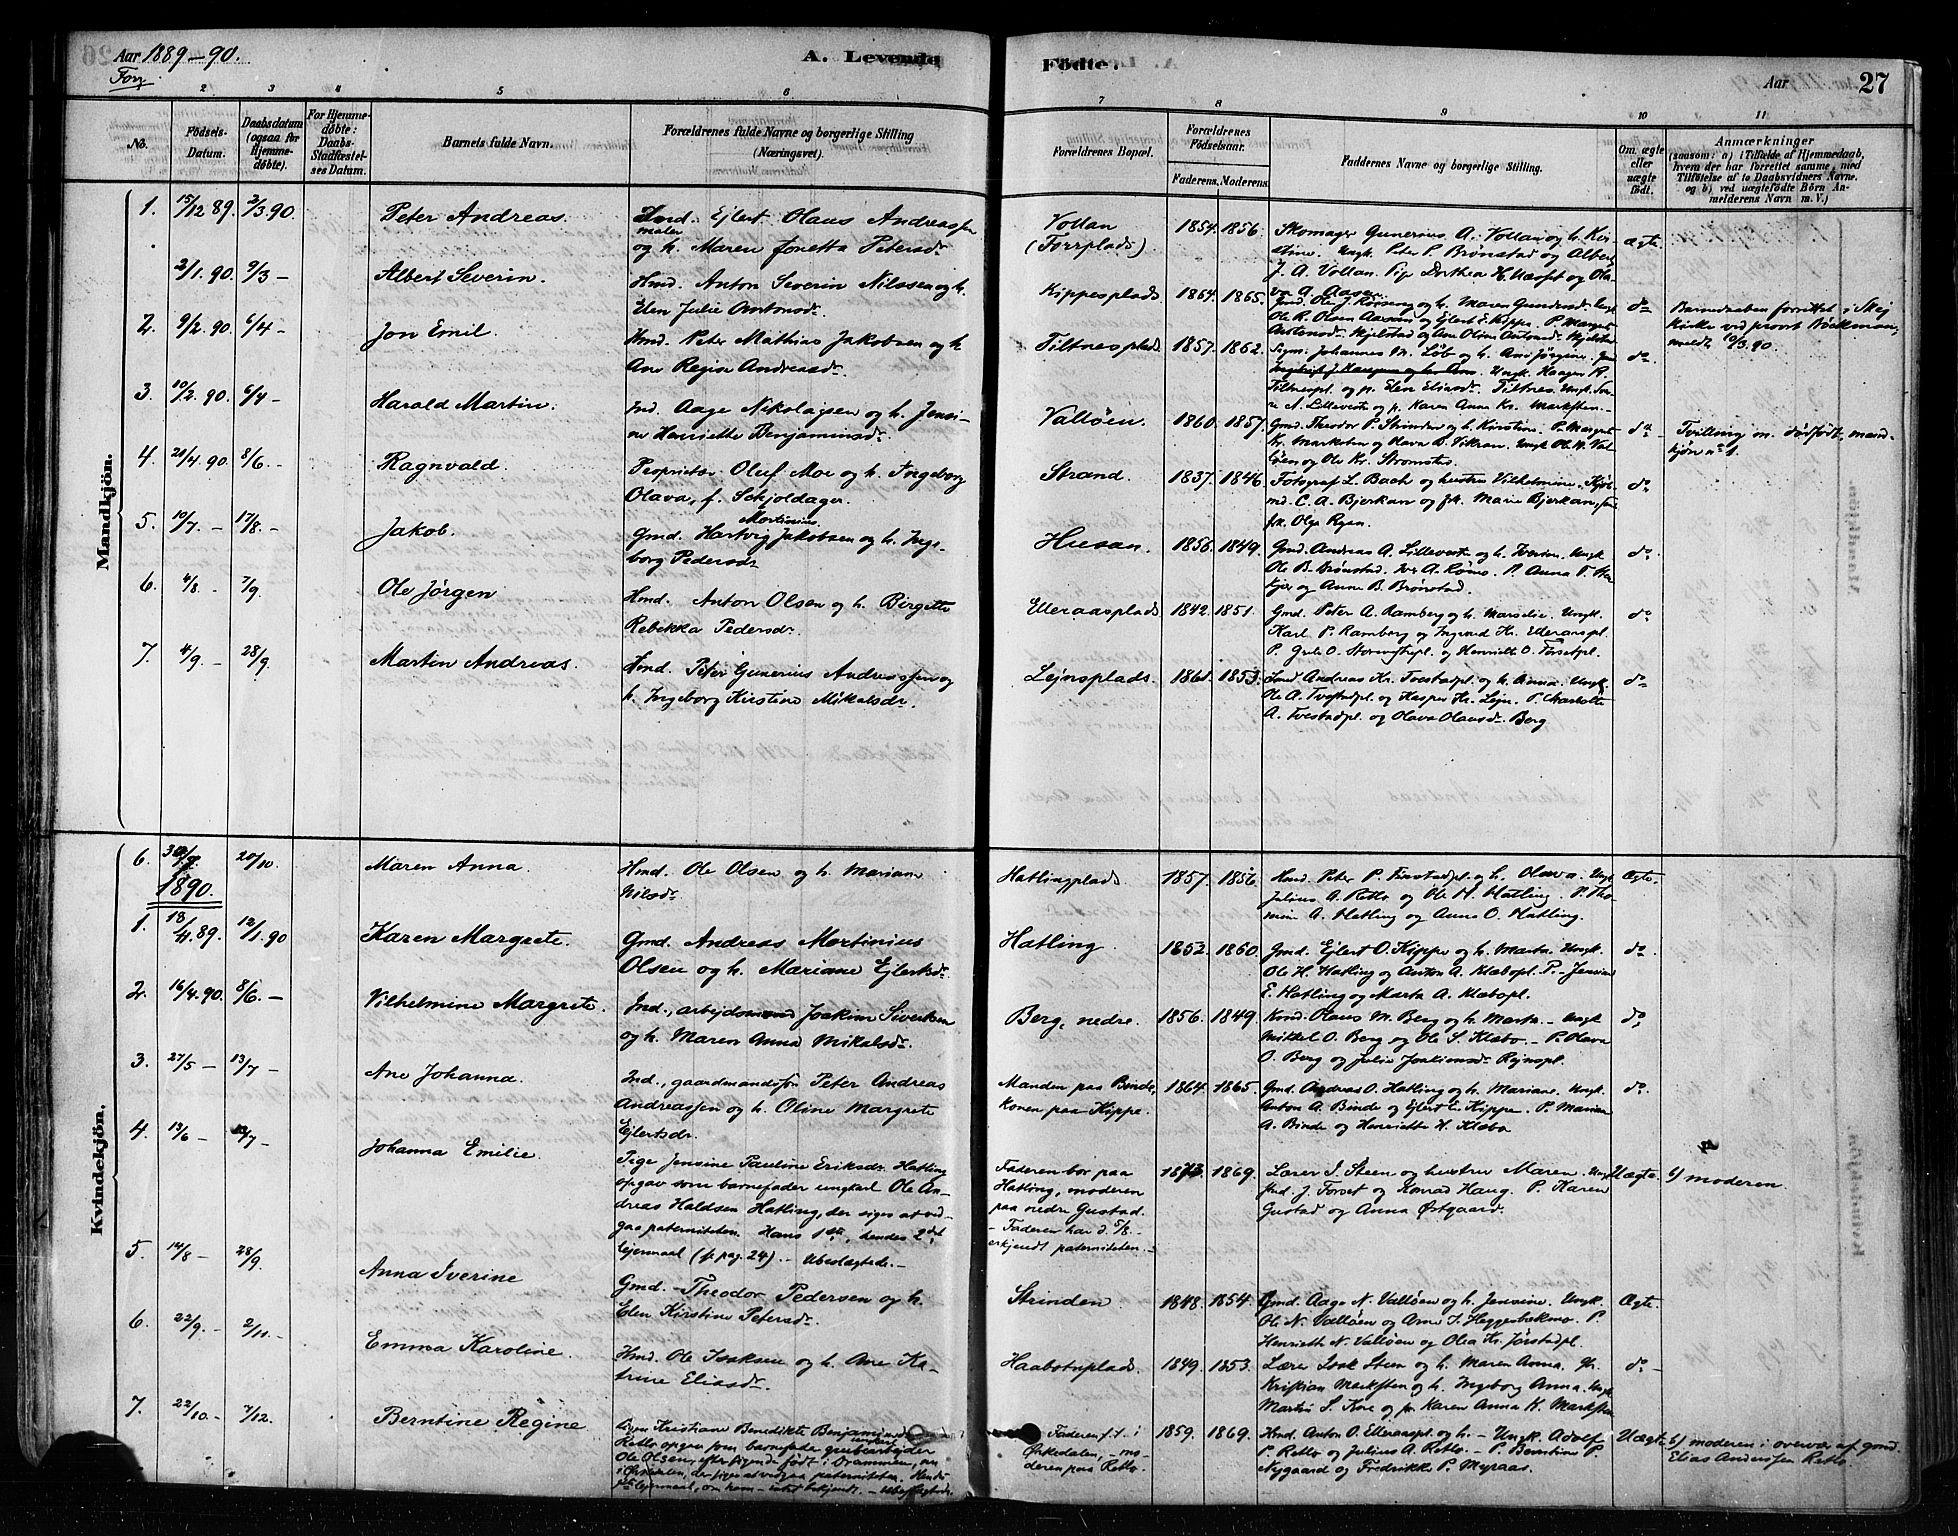 Aar 1889-90.
A. Levende Födte.
Aar 27
Forr
2 3 4 5 6 7 8 9 10 11
No.
Födsels-Datum.
Daabsdatum (ogsaa for Hjemmedöbte).
For Hjemmedöbte: Daabs-Stadfæstelses Datum.
Barnets fulde Navn.
Forældrenes fulde Navne og borgerlige Stilling (Næringsvei).
Forældrenes Bopæl.
Forældrenes Födselsaar.
Faderens. Moderens.
Faddernes Navne og borgerlige Stilling.
Om ægte eller uægte födt.
Anmærkninger (saasom: a) i Tilfælde af Hjemmedaab, hvem der har forrettet samme, med Tilföielse af to Daabsvidners Navne, og b) ved uægtefödte Börn Anmelderens Navn m. V.)
Mandkjön.
1. 15/12 89. 2/3 90. Peter Andreas. Hmd. Ejlert Olaus Andreassen
maler
og h. Maren Jonetta Petersdr
Vollan (Forrplads) 1854. 1856. Skomager Gunerius A. Vollan og h. Kirstine. Ungk. Peter P. Brønstad og Albert J. A. Vollan. Pige Dorthea H. og Olava A. Aasen. ægte
2/1. 90. 9/3 – Albert Severin. Hmd. Anton Severin Nilssen og h.
Elen Julie Antonsdr.
Kippesplads 1864. 1865. Gmd. Ole J. og h. Maren Gundersd. Ungk. Ole R. Olsen Aasen og Ejlert E. Kippe. P. Margret Antonsd. Hjelstad og Olina Antonsd. Hjelstad do
Barnedaaben forrettet i Skej Kirke ved provst Bøckman, meldt 10/3. 90.
2. 9/2. 90. 6/4 – Jon Emil. Hmd. Peter Mathias Jakobsen og h
Ane Regine Andreasdr.
Tiltnesplads 1857. 1862. Johannes M. Løb og h. Ane Jørgine. Ungk. Haagen R. Tiltnespl. og p. Elen Eliasdr. Tiltnes. do
3. 10/2. 90. 6/4 – Harald Martin. Ind. Aage Nikolajsen og h. Jensine Henriette Benjaminsdr.
Valløen. 1860. 1857. Gmd. Theodor P. Strinden og h. Kirstine. P. Margret Kr. Marksten og Olava B. Vikran. Ungk. Ole N. Valløen og Ole Kr. Stromstad. do
Tvilling m. dødfødt, mandkjøn no 1.
4. 21/4. 90. 8/6. – Ragnvald. Proprietær Oluf Moe og h. Ingeborg
Olava, f. Schjoldager.
Strand. 1837. 1846. Fotograf L. Bach og hustru Vilhelmine. Kjøbmd. C. A. Bjerkan og frk. Marie Bjerkan, frk. Olga Rygan. do
5. 10/7. – 17/8. – Jakob. Gmd. Hartvig Mortinius Jakobsen og h. Ingeborg Pedersdr
Huesan. 1856. 1849. Gmd. Andreas A. Lillevestre og h. Iverine. Ungk. Ole B. Brønstad. Ivr A. Rømo. P. Anna T. og Anne B. Brønstad. do
6. 4/8. – 7/9. Ole Jørgen Hmd. Anton Olsen og h. Birgitte
Rebekka Pedersdr.
Elleraasplads 1842. 1851. Gmd. Peter A. Ramberg og h. Marselie. Ungk. Karl P. Ramberg og Ingvald Kr. Elleraaspl. P. Grete O. og Henriette O. Forsetpl. do
7. 4/9. – 28/9. Martin Andreas. Hmd. Peter Gunerius Andreassen og
h. Ingeborg Kirstine Mikalsdr.
Lejnsplads. 1861. 1853. Hmd Andreas Kr. Tvestadpl. og h. Anna. Ungk. Ole A. Tvestadpl. og Kasper Kr. Lejn. P. Charlotte A. Tvestadpl. og Olava Olausdr Berg do
Kvindekjön.
6. 30/7 20/10. Maren Anna. Hmd. Ole Olsen og h. Mariane
Nilsdr.
Hatlingplads. 1857. 1856. Hmd. Peter P. og h. Olava. Ungk Julius A. Retto og Ole H. Hatling. P. Thomine A. Hatling og Anne O. Hatling. Ægte.
1890.
1. 18/4. 89. 12/1. 90 Karen Margrete. Gmd. Andreas Mortinius
Olsen og h. Mariane Ejlertsdr.
Hatling. 1852. 1860. Gmd. Ejlert O. Kippe og h. Marta. Ungk. Ole H. Hatling og Anton A. Klæbopl. P. Jensine E. Hatling og Marta A. Klæbopl. do
2. 16/4. 90. 8/6. – Vilhelmine Margrete. Ind., arbejdsmand Joakim Sivertsen
og h. Maren Anna Mikalsdr.
Berg, nedre. 1856. 1849. Olaus M. Berg og h. Marta. – Ungk Mikkel O. Berg og Ole S. Klæbo. – P. Olava O. Berg og Julie Joakimsdr. do
3. 27/5 – 13/7 – Ane Johanna. Ind., gaardmandsføn Peter Andreas
Andreassen og h. Oline Margrete
Ejlertsdr.
Manden paa Binde, konen paa Kippe. 1864. 1865. Gmd. Andreas O. Hatling og h. Mariane. Ungk. Anton A. Binde og Ejlert E. Kippe. P. Mariane A. Binde og Henriette H. Klæbo. do
4. 13/6 – 13/7 – Johanna Emilie. Pige Jensine Pauline Eriksdr. Hatling
opgav som barnefader ungkarl Ole Andreas Haldsen Hatling, der siges at vedgaa paterniteten. Hans 1ste, hendes 2det lejermaal (p. pag. 24). – Ubeslægtede. –
Faderen bor paa Hatling, moderen paa nedre Gustad. – Faderen har d. 5/8. erkjendt paterniteten. –
1869. Lærer I. Steen og hustru Maren. Ungk J. Forset og Konrad Haug. P. Karen Gustad og Anna Østgaard. Uægte. b) moderen.
5. 14/8 – 28/9. Anna Iverine Gmd. Theodor Pedersen og h.
Elen Kirstine Petersdr.
Strinden 1848. 1854. Gmd. Aage N. Valløen og h. Jensine. Ungk. Ole N. Valløen og Arne J. Heggesbakmo. P. Henriette N. Valløen og Olea Kr. Jørstadpl. Ægte.
6. 22/9. – 2/11. – Emma Karoline. Hmd. Ole Isaksen og h. Ane Katrine Eliasdr.
Haabotnplads. 1849. 1853. Lærer Isak Steen og h. Maren Anna. Kristian Marksten og h. Ingeborg Anna. Ungk Martin S. og p. Karen Anna K. Marksten do
7. 22/10. – 7/12. Berntine Regine Pigen Kristiane Benedikte Benjaminsdr
Retto opgav som barnefader grubearbejder Ole Olsen, efter sigende født i Drammen, nu i Orkedalen, der siges at vedgaa paterniteten.
Faderen f. t. i Orkedalen, – moderen paa Retto. 1859. 1869. Hmd. Anton O. Elleraaspl. og h. – Ungk. Adolf P. Retto og Julius A. Retto. – P. Berntine P. Nygaard og Fredrikke P. Myraas. Uægte. b) moderen i overvær af gmd. Elias Andersen Retto.